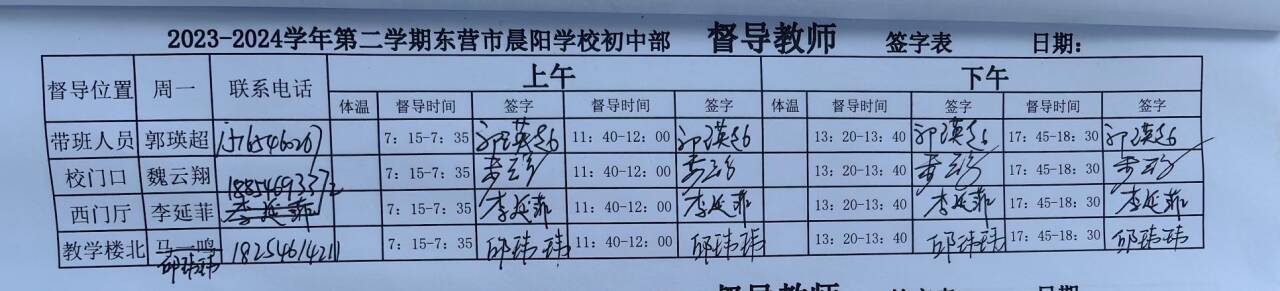 2023-2024学年第二学期东营市晨阳学校初中部 督导教师 签字表 日期:
上午 下午
督导位置 周一 联系电话 体温 督导时间 签字 督导时间 签字 体温 督导时间 签字 督导时间 签字
带班人员 郭瑛超 7: 15-7: 35 郭瑛超 11: 40-12: 00 郭瑛超 13: 20-13: 40 郭瑛超 17: 45-18: 30 郭瑛超
校门口 魏云翔 7: 15-7: 35 11: 40-12: 00 13: 20-13: 40 17: 45-18: 30
西门厅 李延菲 李延菲 7: 15-7: 35 李延菲 11: 40-12: 00 李延菲 13: 20-13: 40 李延菲 17: 45-18: 30 李延菲
教学楼北 马一鸣 18254614211 7: 15-7: 35 邱玮玮 11: 40-12: 00 邱玮玮 13: 20-13: 40 邱玮玮 17: 45-18: 30 邱玮玮
邱玮玮
督导教师 签字表 日期: